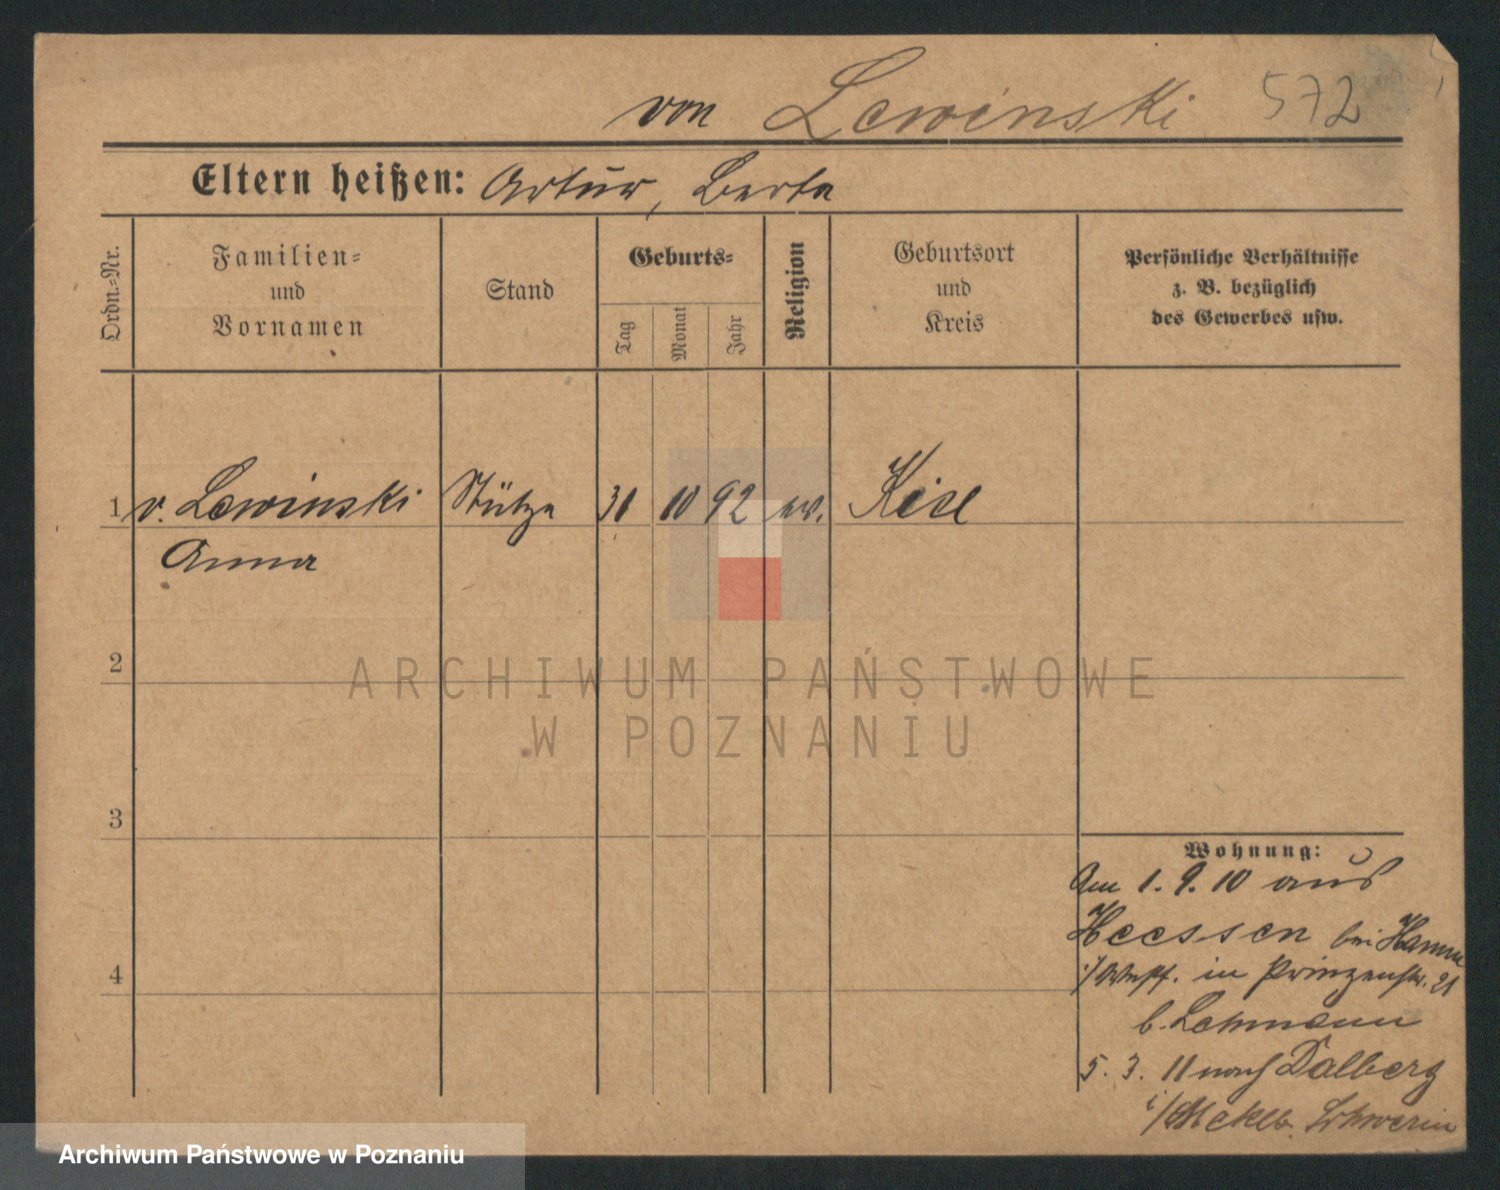 von Lewinski 572
Eltern heißen: Artur, Berta
Ordn.-Nr.
Familien-
und
Vornamen
Stand
Geburts-
Tag
Monat
Jahr
Religion
Geburtsort
und
Kreis
Persönliche Verhältnisse
z. B. bezüglich
des Gewerbes usw.
1 v. Lewinski Stütze 31 10 92 ev.
Anna
2
3
4
Wohnung:
Am 1. 9. 10 aus
Heessen bei Hamm
i/Westf. in Prinzenstr. 21
b. Lehmann
5. 3. 11 nach Dalberg
i/Meklb. Schwerin
ARCHIWUM PAŃSTWOWE
W POZNANIU
Archiwum Państwowe w Poznaniu